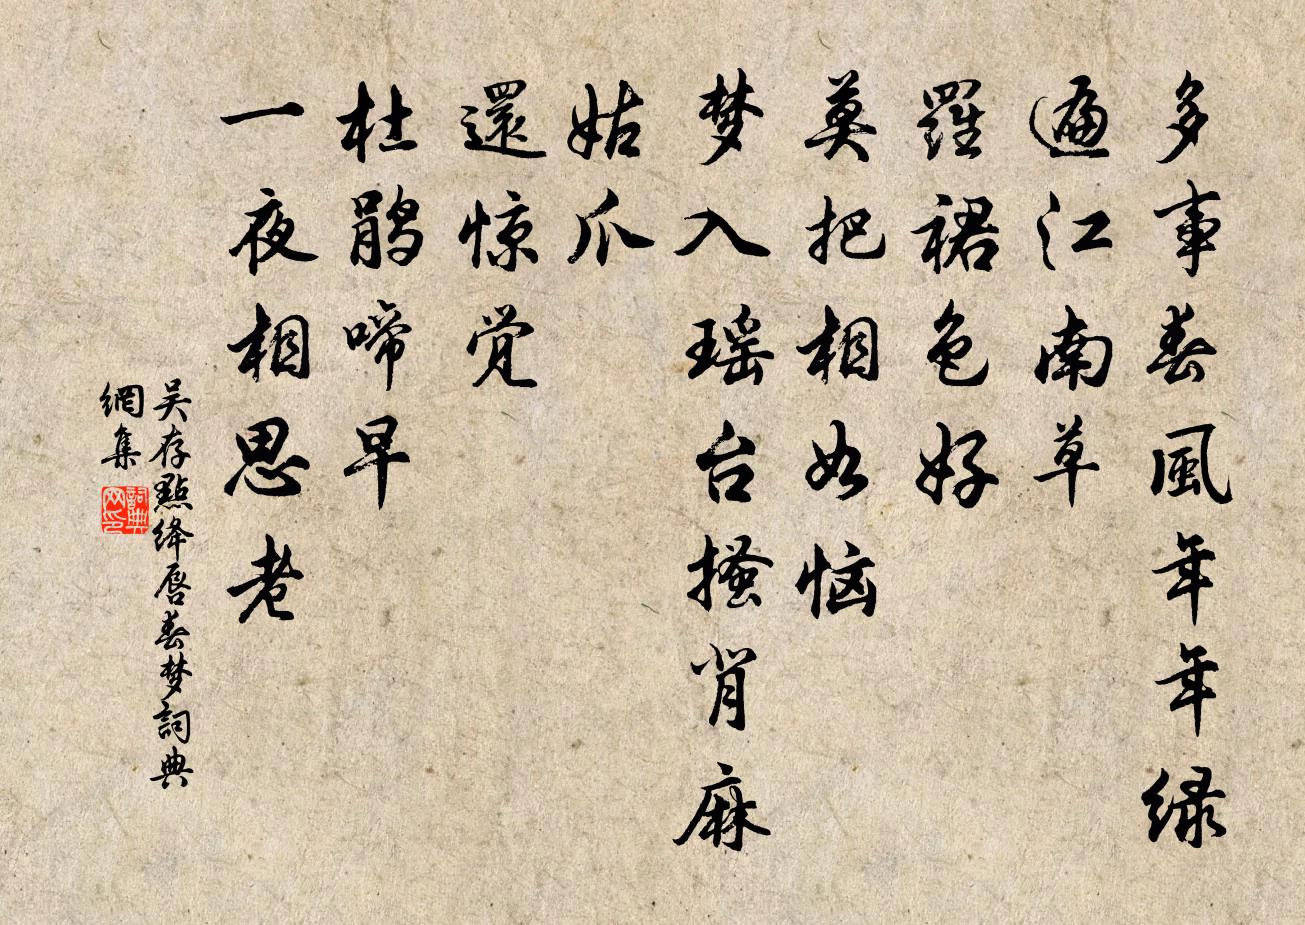 多事春風年年绿
遍江南草
羅裙色好
莫把相如恼
梦入瑶台搔背麻
姑爪
還惊觉
杜鹃啼早
一夜相思老
吴存點绛唇春梦詞典
網集
詞典
网印